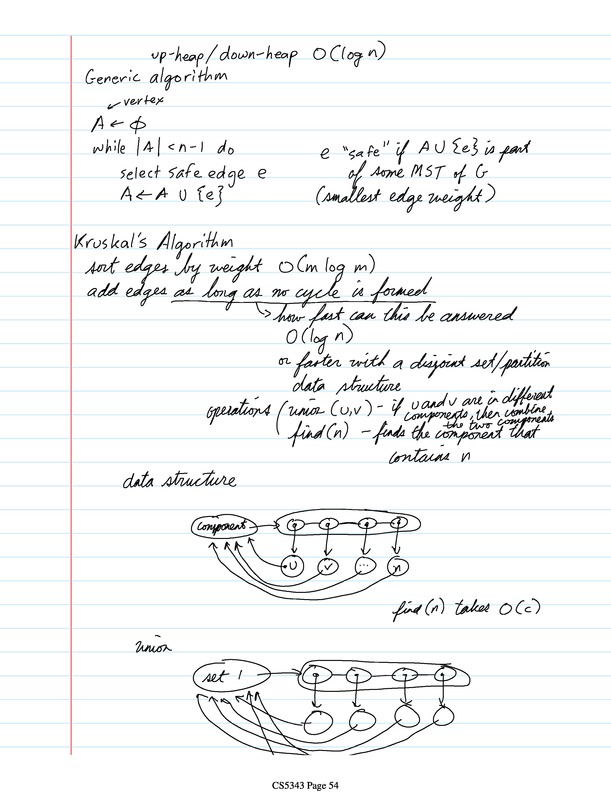 up-heap/down-heap O(log n)
Generic algorithm
vertex
A ← ∅
while |A| < n-1 do
select safe edge e
A ← A ∪ {e}
e "safe" if A ∪ {e} is part
of some MST of G
(smallest edge weight)
Kruskal's Algorithm
sort edges by weight O(m log m)
add edges as long as no cycle is formed
how fast can this be answered
O(log n)
or faster with a disjoint set/partition
data structure
operations ( union (u,v) - if u and v are in different
components, then combine
the two components
find(n) - finds the component that
contains n
data structure
component
u v ... n
find(n) takes O(c)
union
set 1
CS5343 Page 54